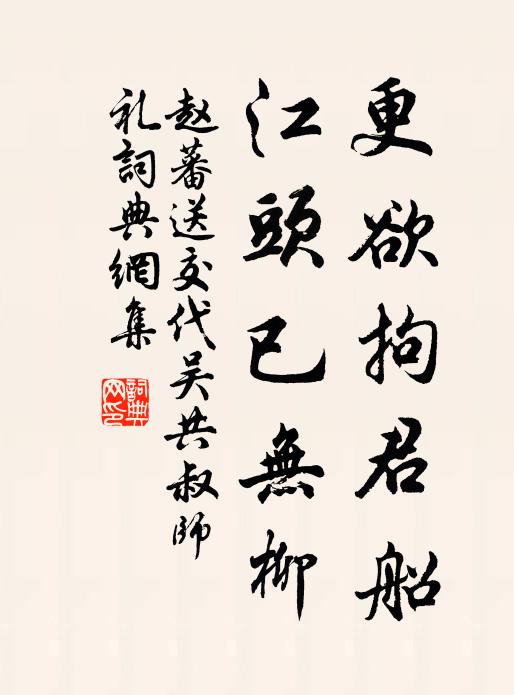 更欲拘君船
江頭已無柳
赵蕃送交代吴共叔師
礼詞典網集
詞典網印